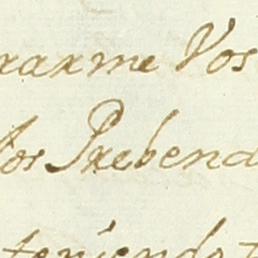 raxme Vos
los Prebend
teniendo t